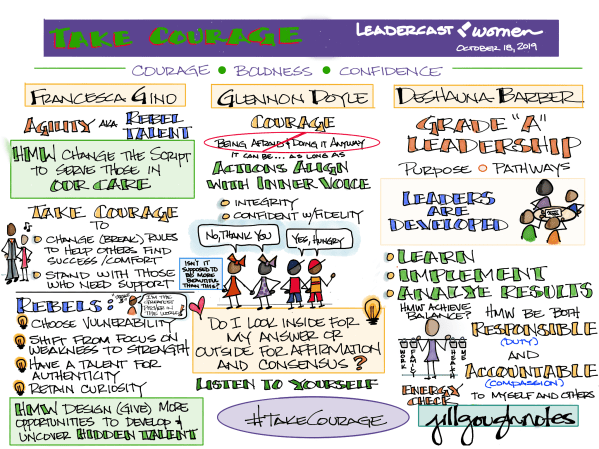 TAKE COURAGE
LEADERCAST women
OCTOBER 18, 2019
COURAGE • BOLDNESS • CONFIDENCE
FRANCESCA GINO
AGILITY AKA REBEL
TALENT
HMW CHANGE THE SCRIPT
TO SERVE THOSE IN
OUR CARE
TAKE COURAGE
TO
CHANGE (BREAK) RULES
TO HELP OTHERS FIND
SUCCESS/COMFORT
STAND WITH THOSE
WHO NEED SUPPORT
REBELS:
I'M THE
PITCHER IN
THE WORLD
CHOOSE VULNERABILITY
SHIFT FROM FOCUS ON
WEAKNESS TO STRENGTH
HAVE A TALENT FOR
AUTHENTICITY
RETAIN CURIOSITY
HMW DESIGN (GIVE) MORE
OPPORTUNITIES TO DEVELOP &
UNCOVER HIDDEN TALENT
GLENNON DOYLE
COURAGE
BEING AFRAID & DOING IT ANYWAY
IT CAN BE... AS LONG AS
ACTIONS ALIGN
WITH INNER VOICE
INTEGRITY
CONFIDENT W/FIDELITY
NO, THANK YOU
YES, HUNGRY
ISN'T IT
SUPPOSED TO
BE MORE
BEAUTIFUL
THAN THIS?
DO I LOOK INSIDE FOR
MY ANSWER OR
OUTSIDE FOR AFFIRMATION
AND CONSENSUS?
LISTEN TO YOURSELF
#TAKECOURAGE
DESHAUNA BARBER
GRADE "A"
LEADERSHIP
PURPOSE • PATHWAYS
LEADERS
ARE
DEVELOPED
LEARN
IMPLEMENT
ANALYZE RESULTS
HMW ACHIEVE
BALANCE?
WORK
FAMILY
ME
HEALTH
HMW BE BOTH
RESPONSIBLE
(DUTY)
AND
ACCOUNTABLE
(COMPASSION)
TO MYSELF AND OTHERS
ENERGY
CHECK
jillgoughnotes